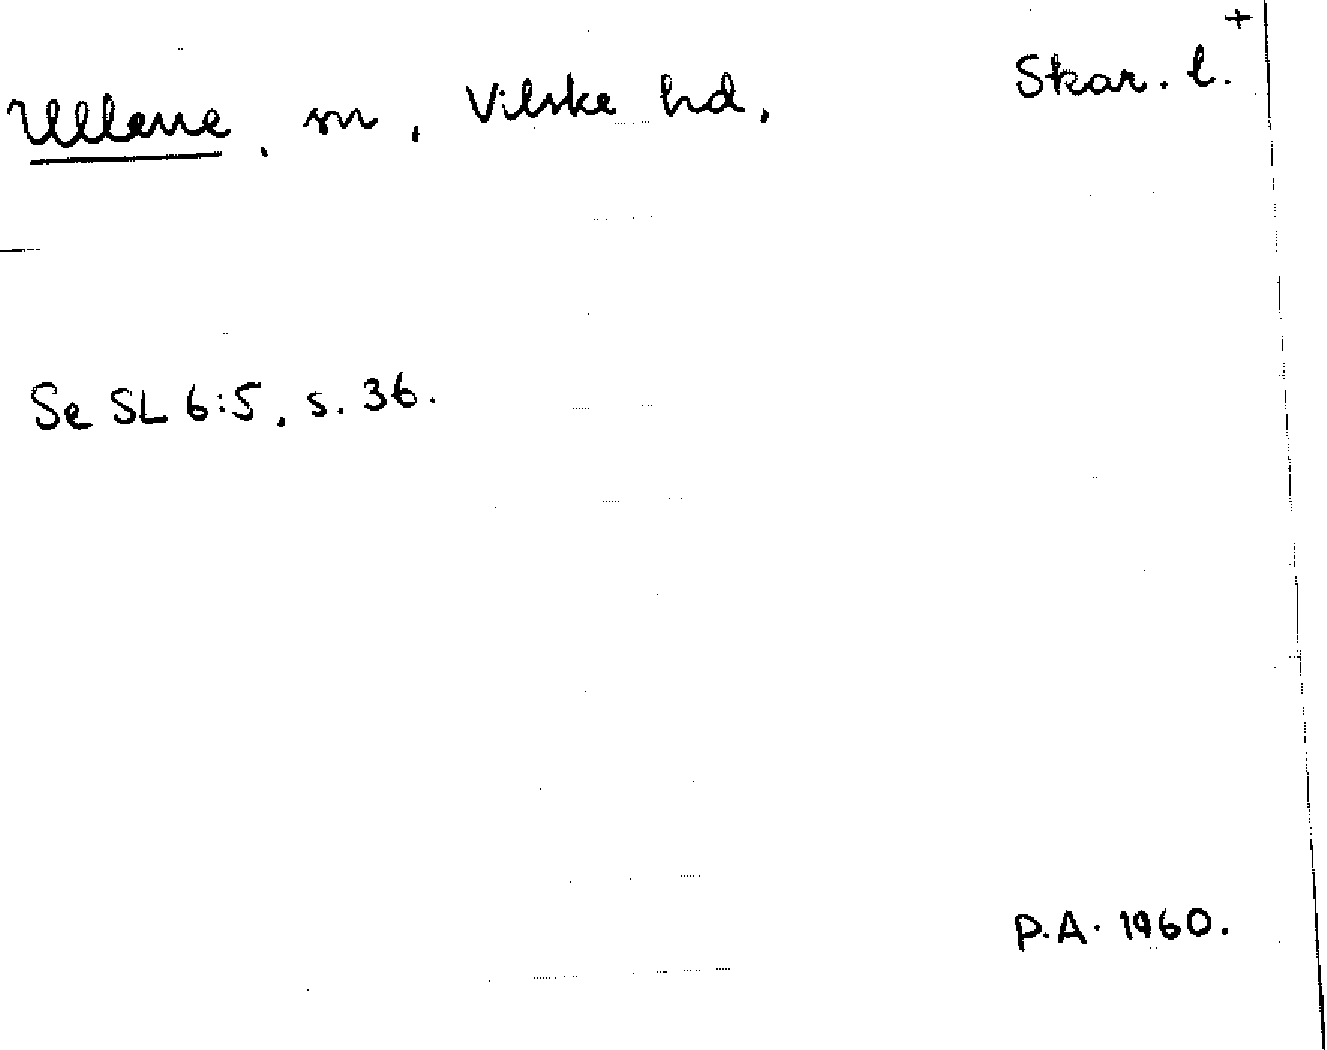 Ullene, sn, Vilske hd, Skar. l. +
Se SL 6:5, s. 36.
P.A. 1960.